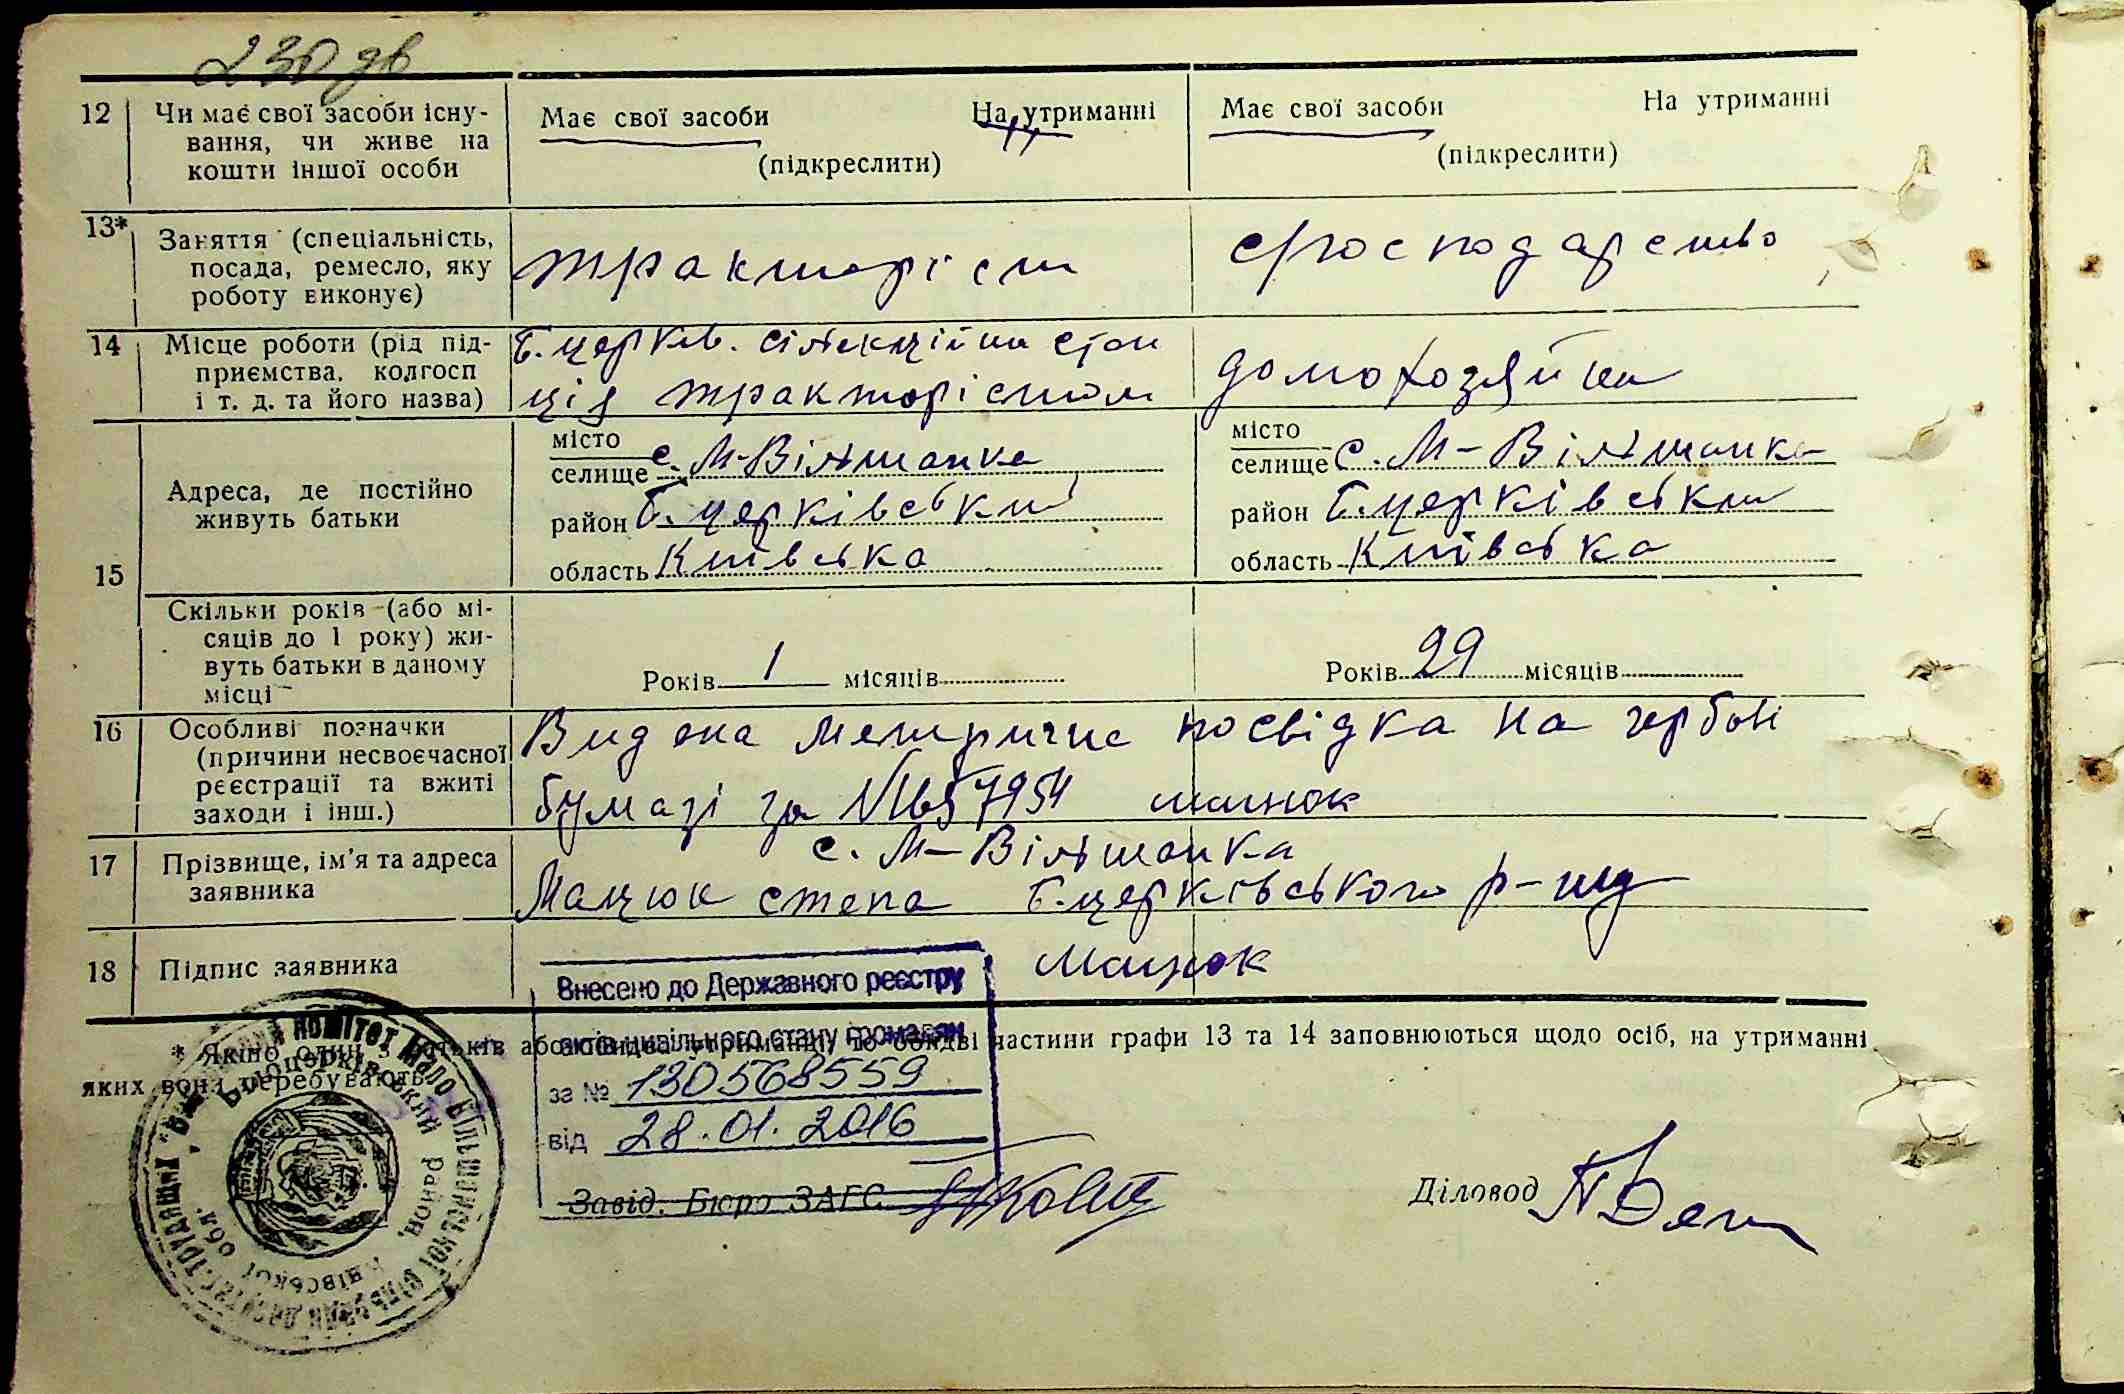 230 зв
12 Чи має свої засоби існу-
вання, чи живе на
кошти іншої особи
Має свої засоби На утриманні
(підкреслити)
Має свої засоби На утриманні
(підкреслити)
13* Заняття (спеціальність,
посада, ремесло, яку
роботу виконує)
тракторіст
господарство
14 Місце роботи (рід під-
приємства, колгосп
і т. д. та його назва)
Б.церків. сілекційна стан
ція трактористом
домохозяйка
15 Адреса, де постійно
живуть батьки
місто
селище с. М-Вільшанка
район Б.церківськи
область Київська
місто
селище с. М-Вільшанка
район Б.церківськи
область Київська
Скільки років (або мі-
сяців до 1 року) жи-
вуть батьки в даному
місці
Років 1 місяців
Років 29 місяців
16 Особливі позначки
(причини несвоєчасної
реєстрації та вжиті
заходи і інш.)
Видана метрична посвідка на гербові
бумазі за №657954 мацюк
17 Прізвище, ім'я та адреса
заявника
с. М-Вільшанка
Мацюк степа Б.церківського р-ну
18 Підпис заявника
Мацюк
Внесено до Державного реєстру
актів цивільного стану громадян
за № 130568559
від 28.01.2016
* Якщо один з батьків або обидва на утриманні, то обидві частини графи 13 та 14 заповнюються щодо осіб, на утриманні
яких вони перебувають.
Завід. Бюро ЗАГС
Діловод
Білоцерківський район, Київської обл.